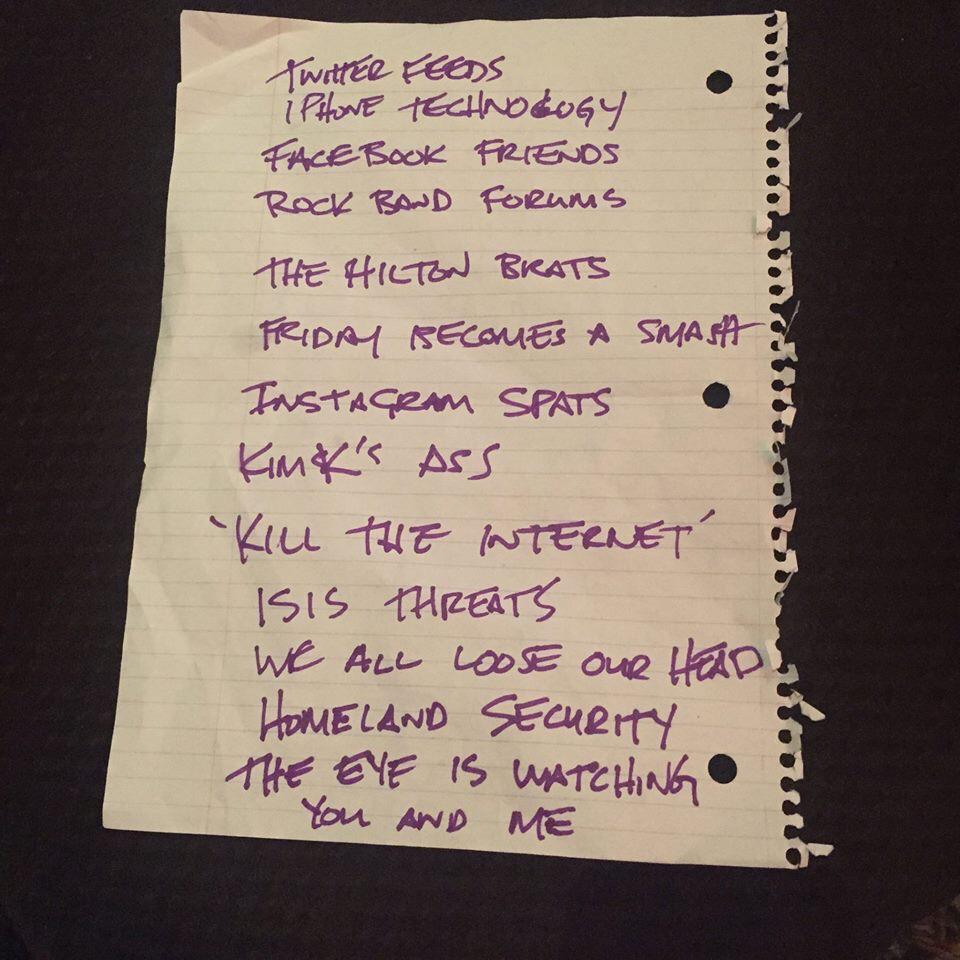 TWITTER FEEDS
IPHONE TECHNOLOGY
FACEBOOK FRIENDS
ROCK BAND FORUMS
THE HILTON BRATS
FRIDAY BECOMES A SMASH
INSTAGRAM SPATS
KIM K'S ASS
'KILL THE INTERNET'
ISIS THREATS
WE ALL LOOSE OUR HEAD
HOMELAND SECURITY
THE EYE IS WATCHING
YOU AND ME